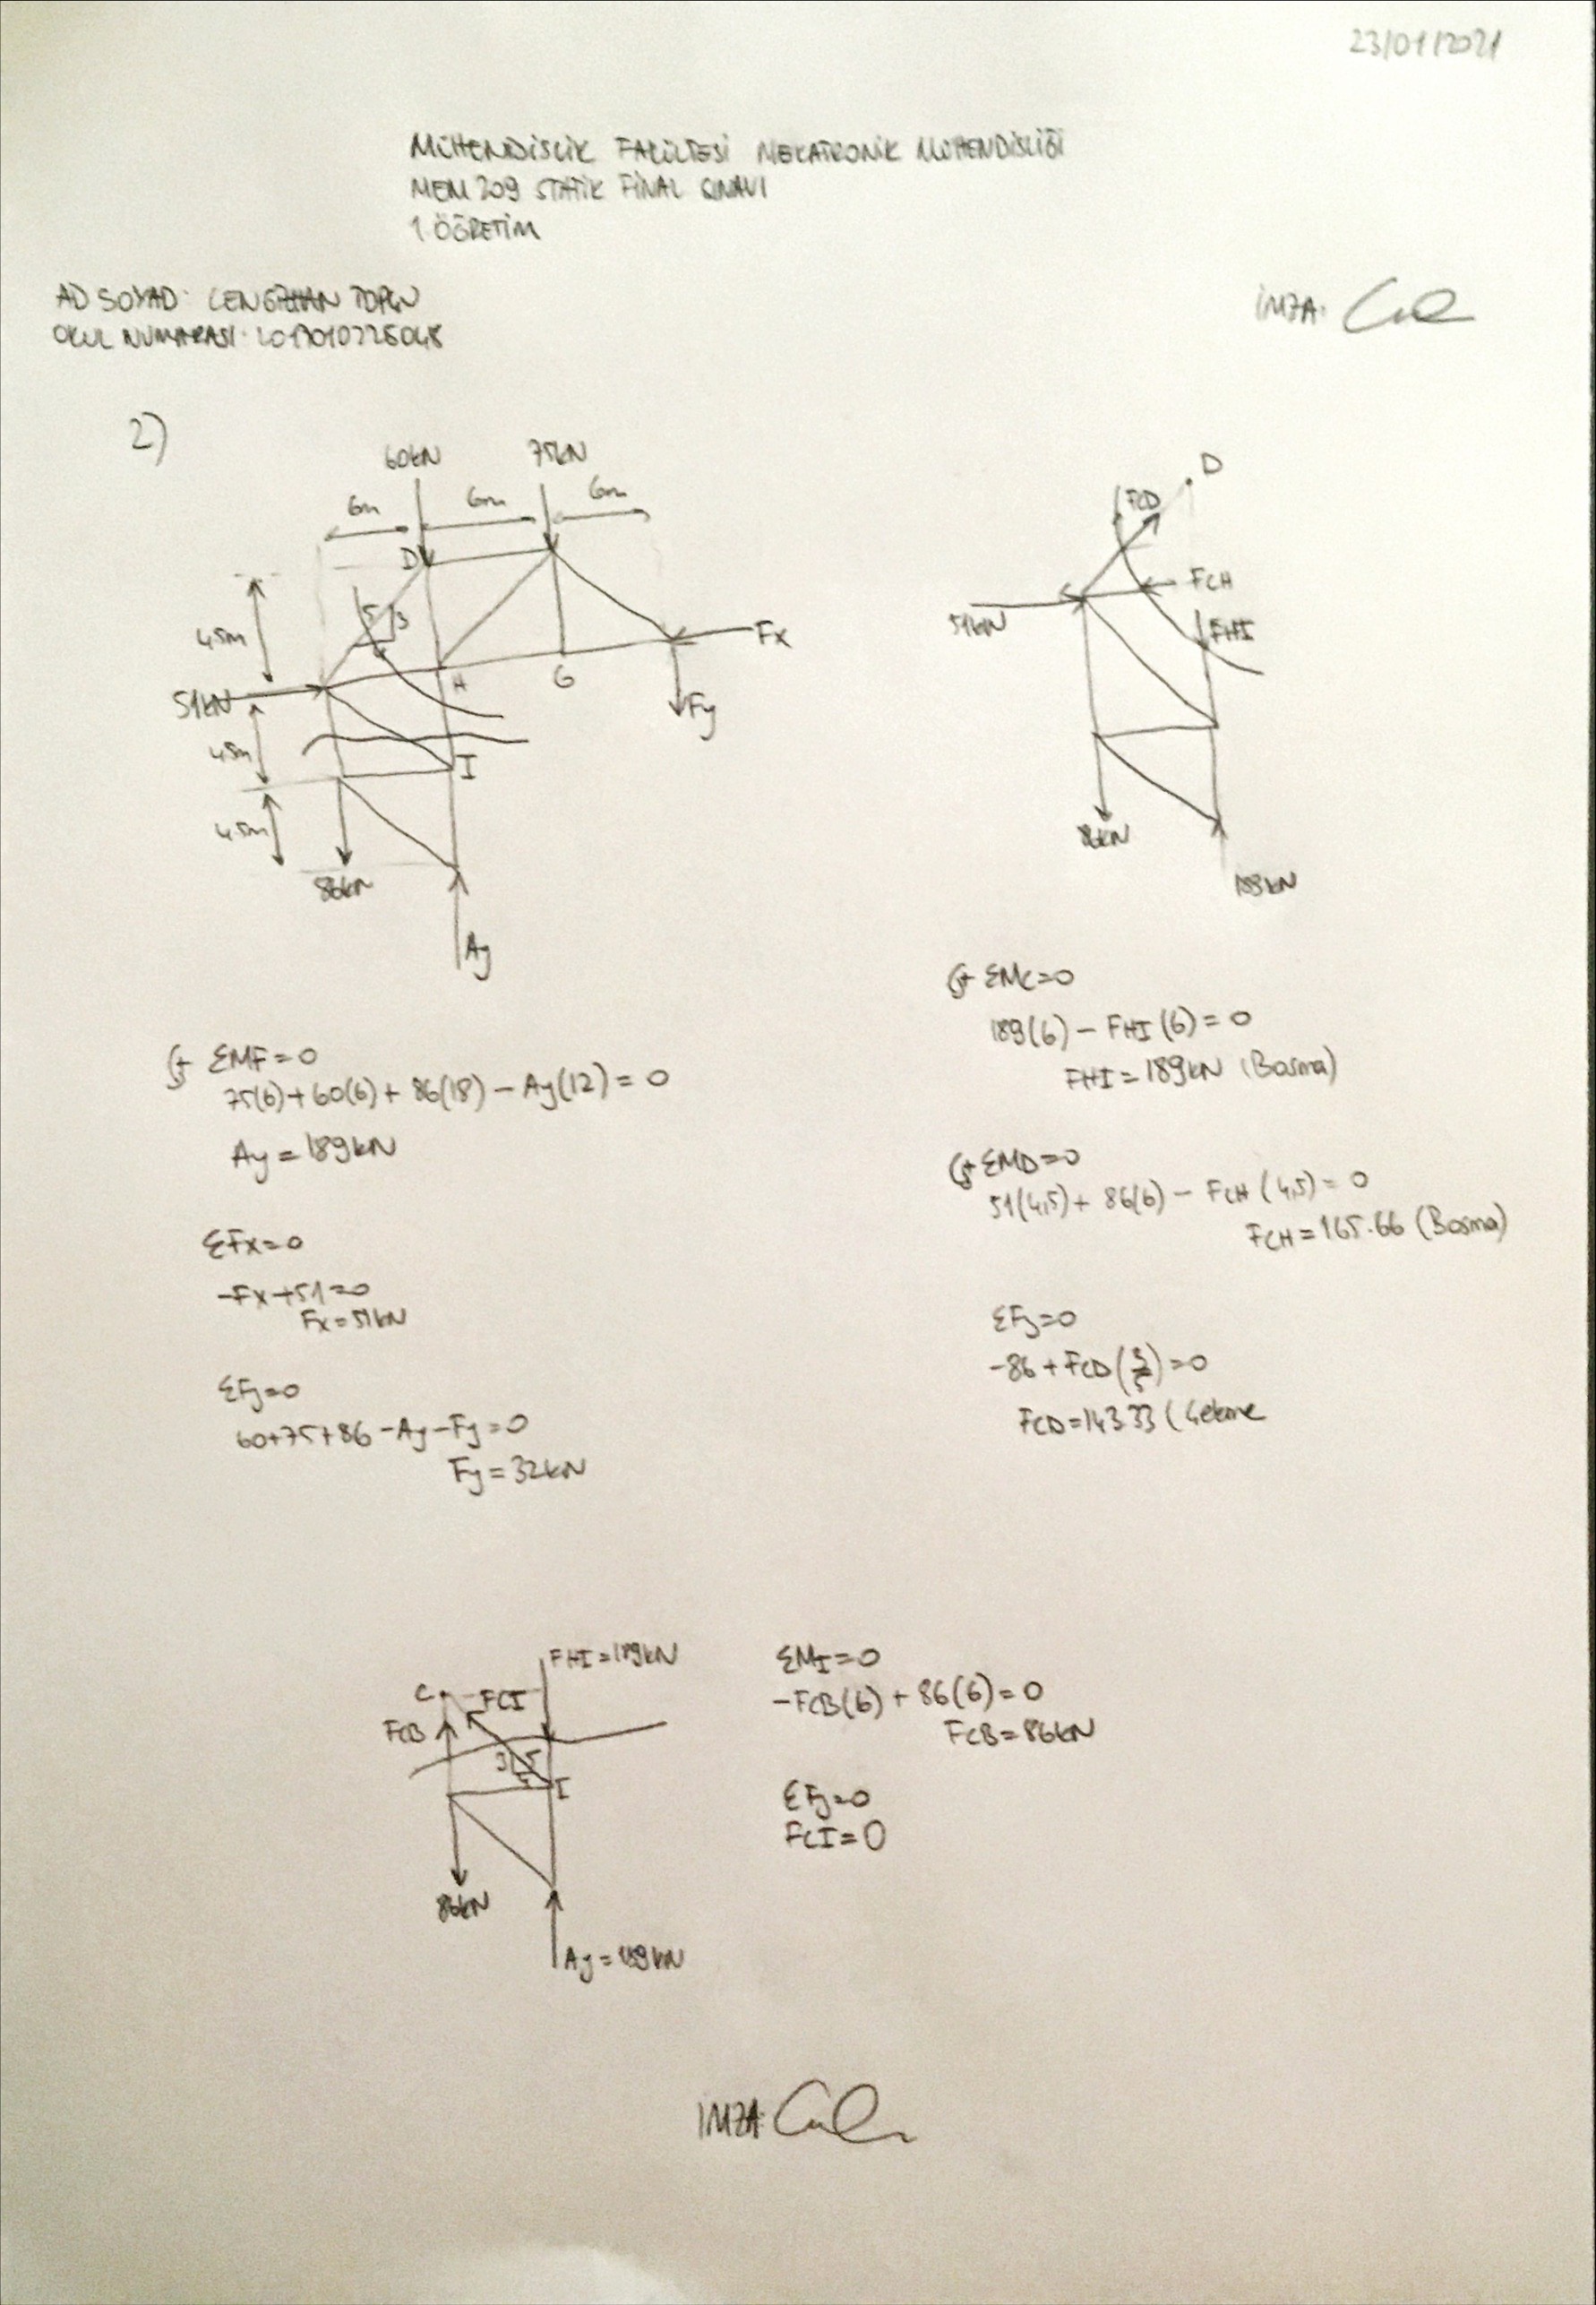 23/01/2021
MÜHENDİSLİK FAKÜLTESİ MEKATRONİK MÜHENDİSLİĞİ
MEM 209 STATİK FİNAL SINAVI
1. ÖĞRETİM
AD SOYAD:
OKUL NUMARASI:
İMZA:
2)
60kN
75kN
6m
6m
6m
D
4,5m
5
3
Fx
H
G
51kN
Fy
4,5m
I
4,5m
86kN
Ay
D
FCD
FCH
51kN
FHI
86kN
189kN
ΣMF=0
75(6)+60(6)+86(18)-Ay(12)=0
Ay=189kN
ΣFx=0
-Fx+51=0
Fx=51kN
ΣFy=0
60+75+86-Ay-Fy=0
Fy=32kN
ΣMC=0
189(6)-FHI(6)=0
FHI=189kN (Basma)
ΣMD=0
51(4,5)+86(6)-FCH(4,5)=0
FCH=165.66 (Basma)
ΣFy=0
-86+FCD(3/5)=0
FCD=143.33 (Çekme
FHI=189kN
C
FCI
FCB
3
5
I
86kN
Ay=189kN
ΣMI=0
-FCB(6)+86(6)=0
FCB=86kN
ΣFy=0
FCI=0
İMZA: